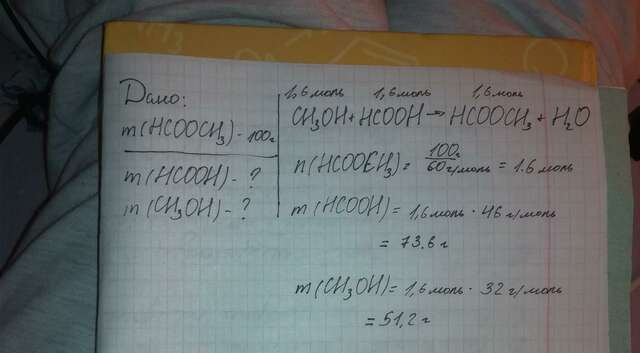 Дано:
m(HCOOCH₃) - 100г
m(HCOOH) - ?
m(CH₃OH) - ?
1,6 моль 1,6 моль 1,6 моль
CH₃OH + HCOOH → HCOOCH₃ + H₂O
n(HCOOCH₃) = 100г / 60 г/моль = 1.6 моль
m(HCOOH) = 1,6 моль · 46 г/моль
= 73.6 г
m(CH₃OH) = 1,6 моль · 32 г/моль
= 51,2 г